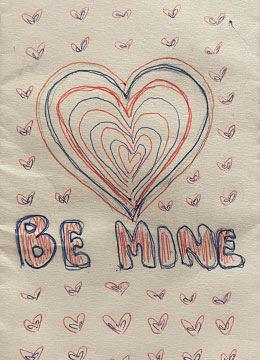 BE MINE